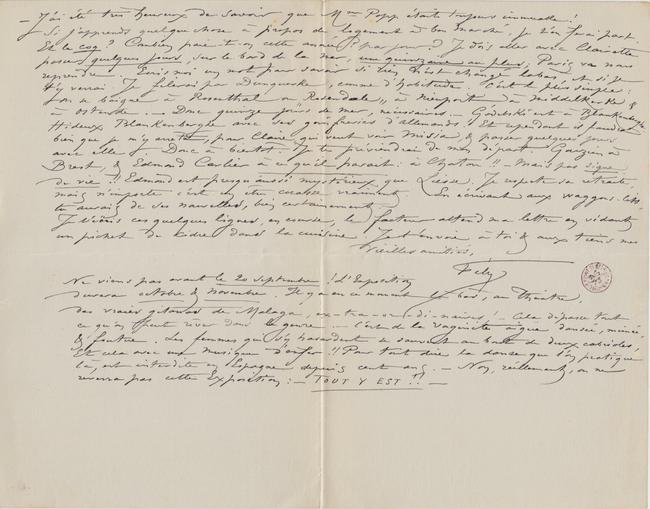 – J'ai été très heureux de savoir que Mme Popp était toujours immuable !
Si j'apprends quelque chose à propos de logement à bon marché, je t'en ferai part.
Et le coq ? Combien paie-t-on cette année par jour ? Je dois aller avec Clairette
passer quelques jours, sur le bord de la mer, une quinzaine au plus ; Paris va nous
reprendre. Écris moi un mot pour savoir si rien n'est changé labas, et si je
t'y verrai. Je filerai par Dunquerke, comme d'habitude. C'est le plus simple :
on se baigne à Rosenthal ou Rosendale, à Nieuport à Middelkerke &
à Ostende. – Donc quinze jours de mer, nécessaires. – Godebski est à Blankenberghe
Hideux Blankenberghe avec ses d'allemands ! Et cependant il faudra
bien que je m'y arrête, pour Claire qui veut voir Misia, & passer quelques jours
avec elle. – Donc à bientôt. Je te préviendrai de mon départ. Gouzien à
Brest, & Edmond Carlier à ce qu'il parait : à Chatou !! – Mais pas signe
de vie !! Edmond est presqu'aussi mystérieux que Liesse. Je respecte sa retraite,
mais n'importe c'est un être vraiment. En écrivant aux waggons-lits,
tu aurais de ses nouvelles, bien certainement.
Je t'écris ces quelques lignes, en course, le facteur attend ma lettre en vidant
un pichet de kidre dans la cuisine. Je t'envoie à toi & aux tiens mes
vieilles amitiés,
Fély
Ne viens pas avant le 20 septembre ! L'Exposition
durera octobre & novembre. Il y a en ce moment, au théatre,
des vraies gitanas de Malaga, ex-tra-or-di-naires ! – Cela dépasse tout
ce qu'on peut rêver dans le genre. – C'est de la dansée, mimée
& foutue. Les femmes qui s'y hasardent se sauvent au bout de deux cabrioles,
Et cela avec une musique d'enfer !! Pour tout dire la danse que l'on pratique
là, est interdite en Espagne depuis cent ans. – Non, réellement, on ne
reverra pas cette Exposition : – TOUT Y EST !! –